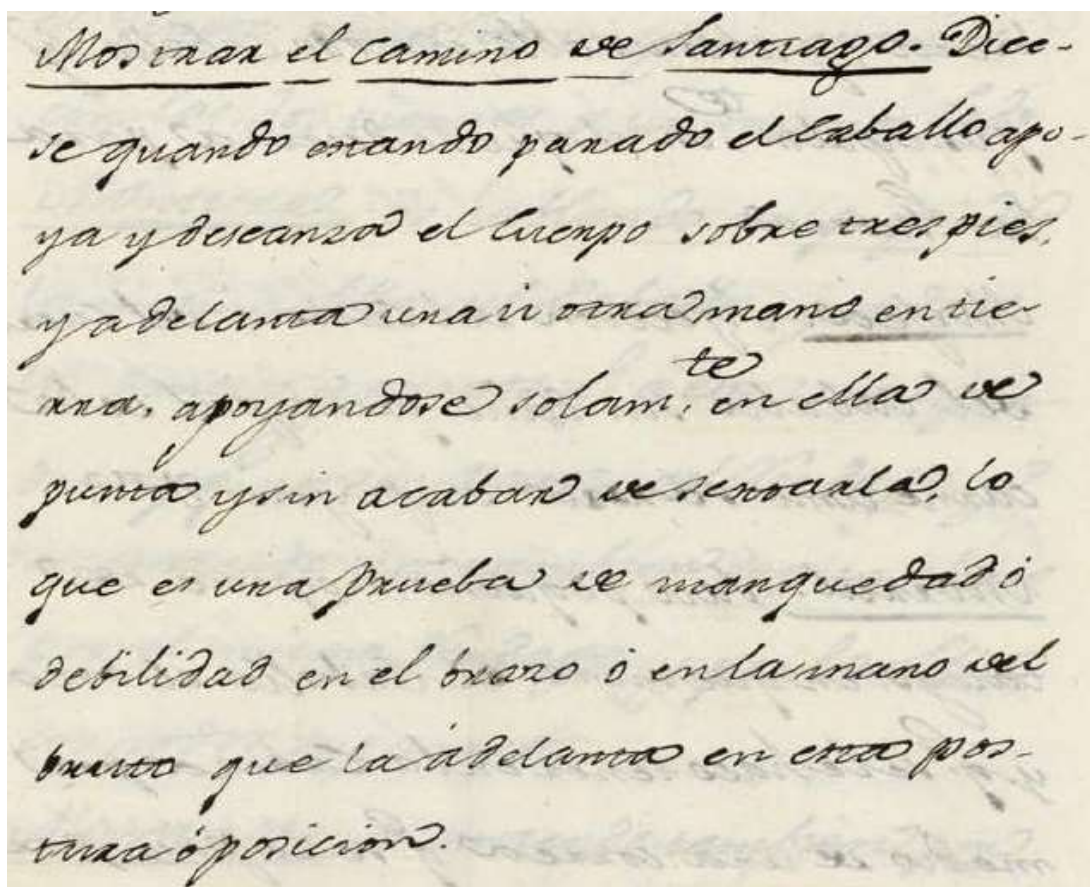 Mostrar el camino de Santiago. Dice-
se quando estando parado el Caballo apo-
ya y descansa el Cuerpo sobre tres pies,
y adelanta una ù otra mano en tie-
rra, apoyandose solam.te en ella de
punta y sin acabar de sentarla, lo
que es una prueba de manquedad ó
debilidad en el brazo ó en la mano del
bruto que la adelanta en esta pos-
tura ó posicion.